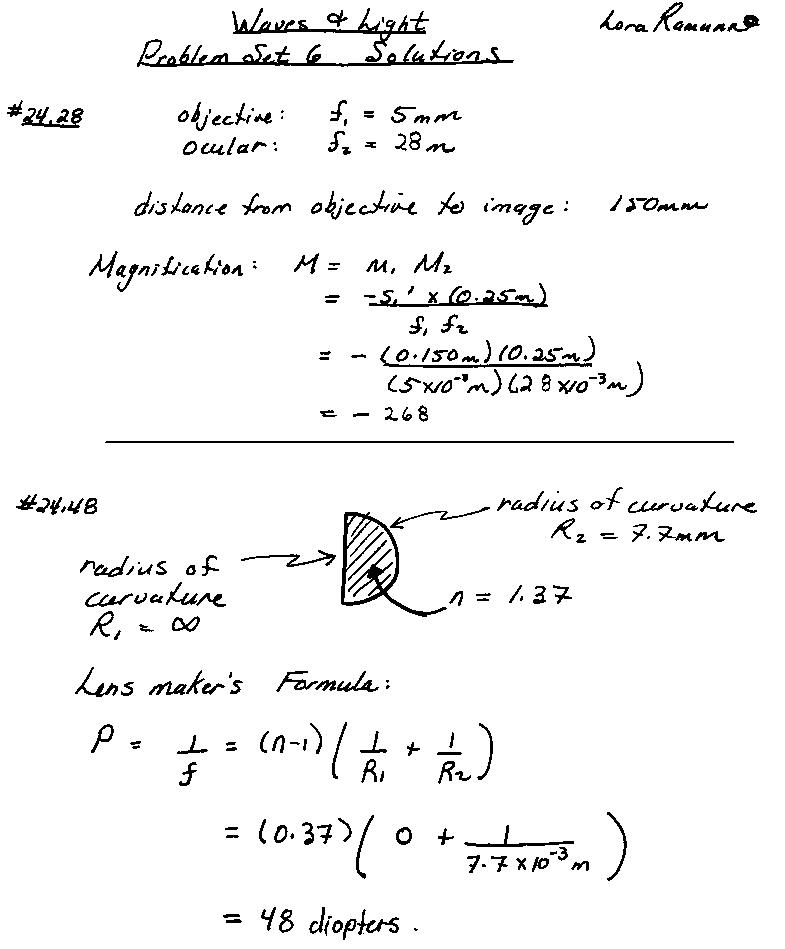 Waves & Light
Lora Ramunno
Problem Set 6 Solutions
#24.28
objective: f₁ = 5mm
ocular: f₂ = 28m
distance from objective to image: 150mm
Magnification: M = m₁ M₂
= -s₁' x (0.25m) / f₁ f₂
= - (0.150m)(0.25m) / (5x10⁻³m)(28x10⁻³m)
= - 268
#24.48
radius of curvature
R₂ = 7.7mm
radius of
curvature
R₁ = ∞
n = 1.37
Lens maker's Formula:
P = 1/f = (n-1)(1/R₁ + 1/R₂)
= (0.37)(0 + 1/7.7 x 10⁻³ m)
= 48 diopters.